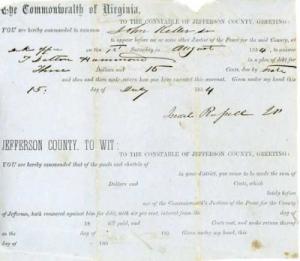 ye Commonwealth of Virginia.
TO THE CONSTABLE OF JEFFERSON COUNTY, GREETING:
YOU are hereby commanded to summon John Keller Sr
to appear before me or some other Justice of the Peace for the said County, at
on the 1st Saturday in August 1854, to answer
T Dalton Hammond in a plea of debt for
Three Dollars and 15 Cents, due by Note
and then and there make return how you have executed this warrant. Given under my hand this
15. day of July 1854
JEFFERSON COUNTY, TO WIT:
TO THE CONSTABLE OF JEFFERSON COUNTY, GREETING:
YOU are hereby commanded that of the goods and chattels of
in your district, you cause to be made the sum of
Dollars and Cents, which
lately before
one of the Commonwealth's Justices of the Peace for the County
of Jefferson, hath recovered against him for debt, with six per cent. interest from the day of
18 till paid, and Cents for cost, and make return thereof
on the day of 185 Given under my hand, this
day of 185